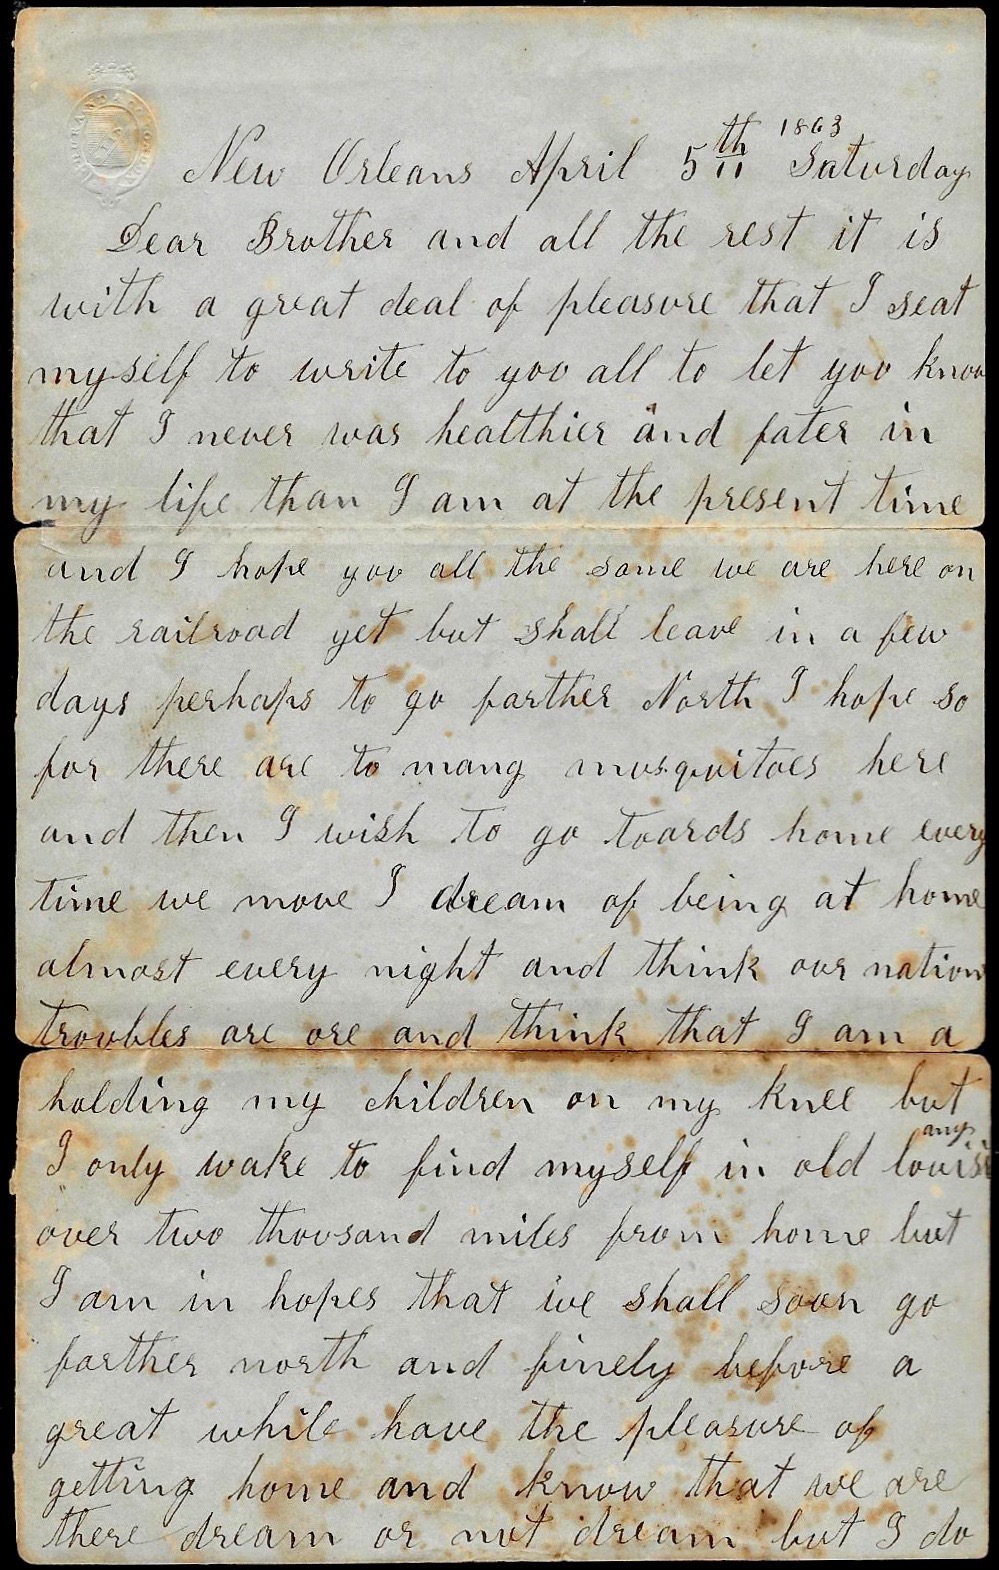 New Orleans April 5th 1863 Saturday
Dear Brother and all the rest it is
with a great deal of pleasure that I seat
myself to write to you all to let you know
that I never was healthier and fater in
my life than I am at the present time
and I hope you all the same we are here on
the railroad yet but shall leave in a few
days perhaps to go farther North I hope so
for there are to many musquitoes here
and then I wish to go toards home every
time we move I dream of being at home
almost every night and think our nation
troubles are ore and think that I am a
holding my children on my knee but
any
I only wake to find myself in old louisi
over two thousand miles from home but
I am in hopes that we shall soon go
farther north and finely before a
great while have the pleasure of
getting home and know that we are
there dream or not dream but I do